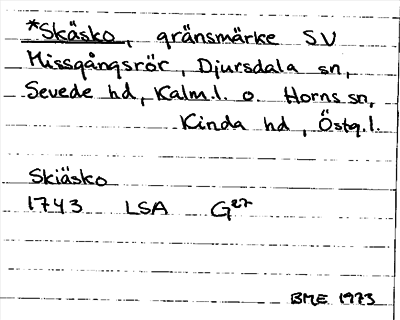 *Skäsko, gränsmärke SV
Missgångsrör, Djursdala sn,
Sevede hd, Kalm.l. o. Horns sn,
Kinda hd, Östg.l.
Skiäsko
1743 LSA G27
BME 1973